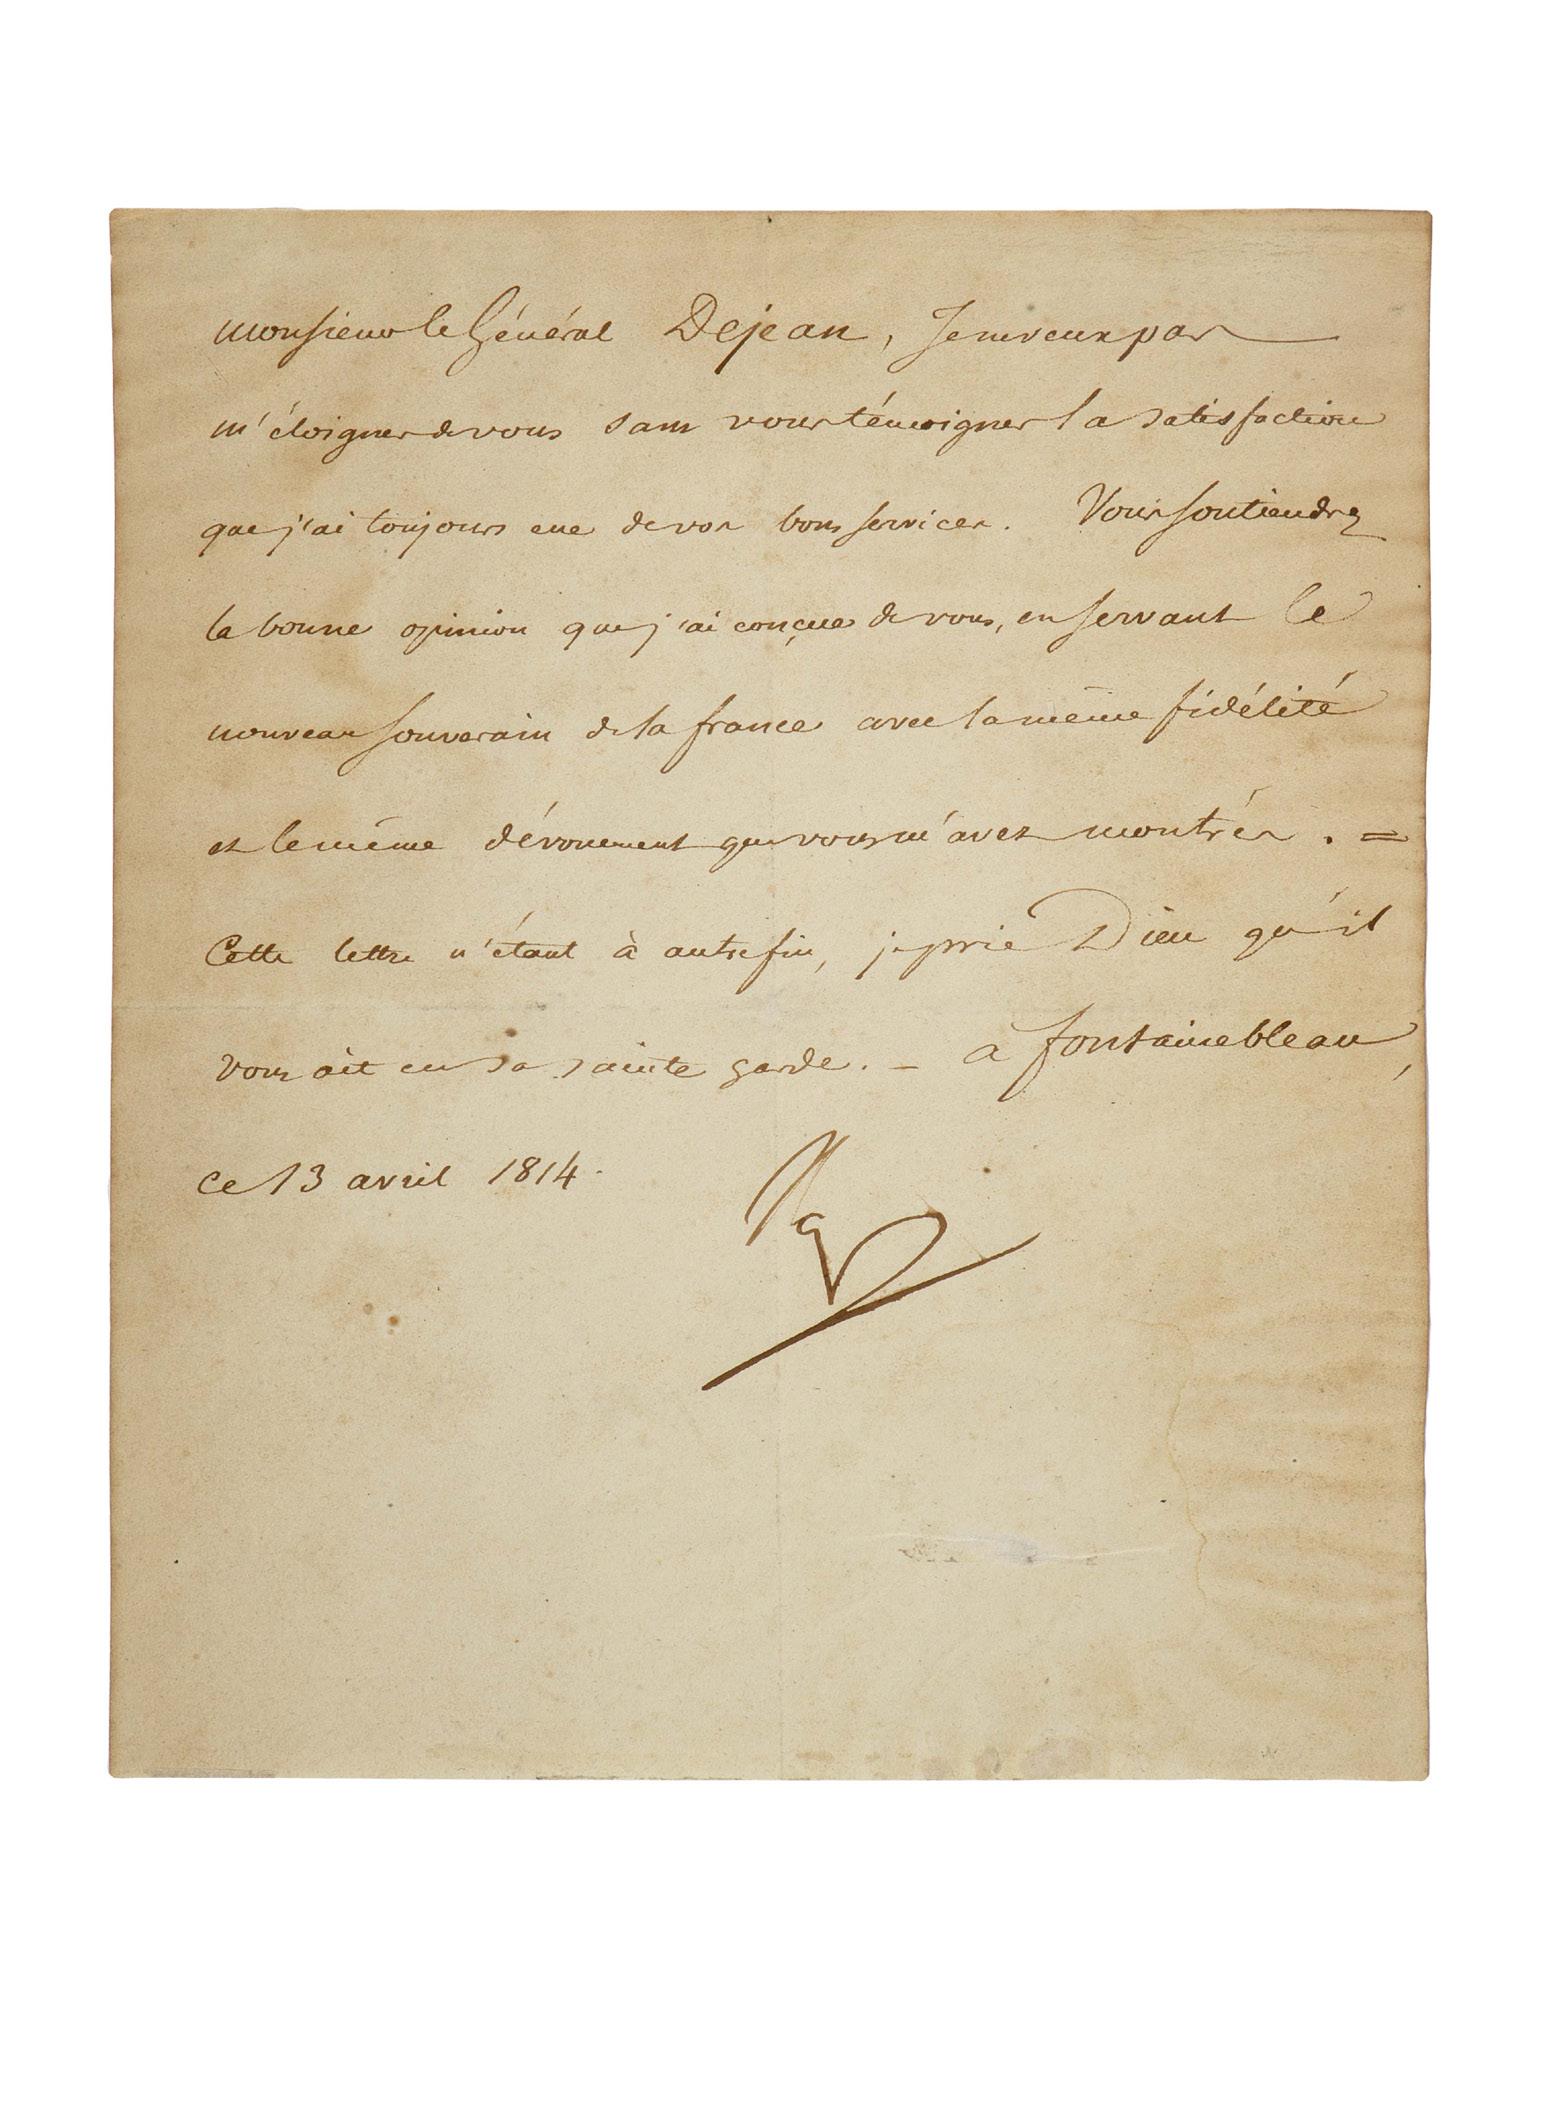 Monsieur le Général Dejean, Je ne veux pas
m'éloigner de vous sans vous témoigner la satisfaction
que j'ai toujours eue de vos bons services. Vous soutiendrez
la bonne opinion que j'ai conçue de vous, en servant le
nouveau souverain de la france avec la même fidélité
et le même dévouement que vous m'avez montrés. =
Cette lettre n'étant à autre fin, je prie Dieu qu'il
vous ait en sa sainte garde. - a fontainebleau,
ce 13 avril 1814.